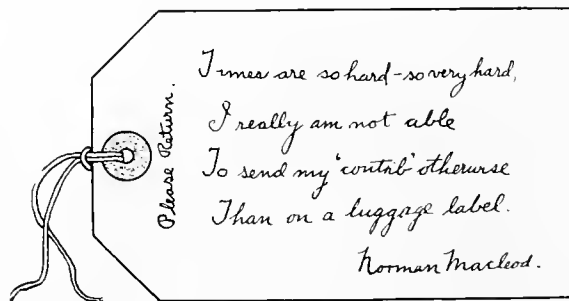 Please Return.
Times are so hard - so very hard,
I really am not able
To send my 'contrib' otherwise
Than on a luggage label.
Norman Macleod.